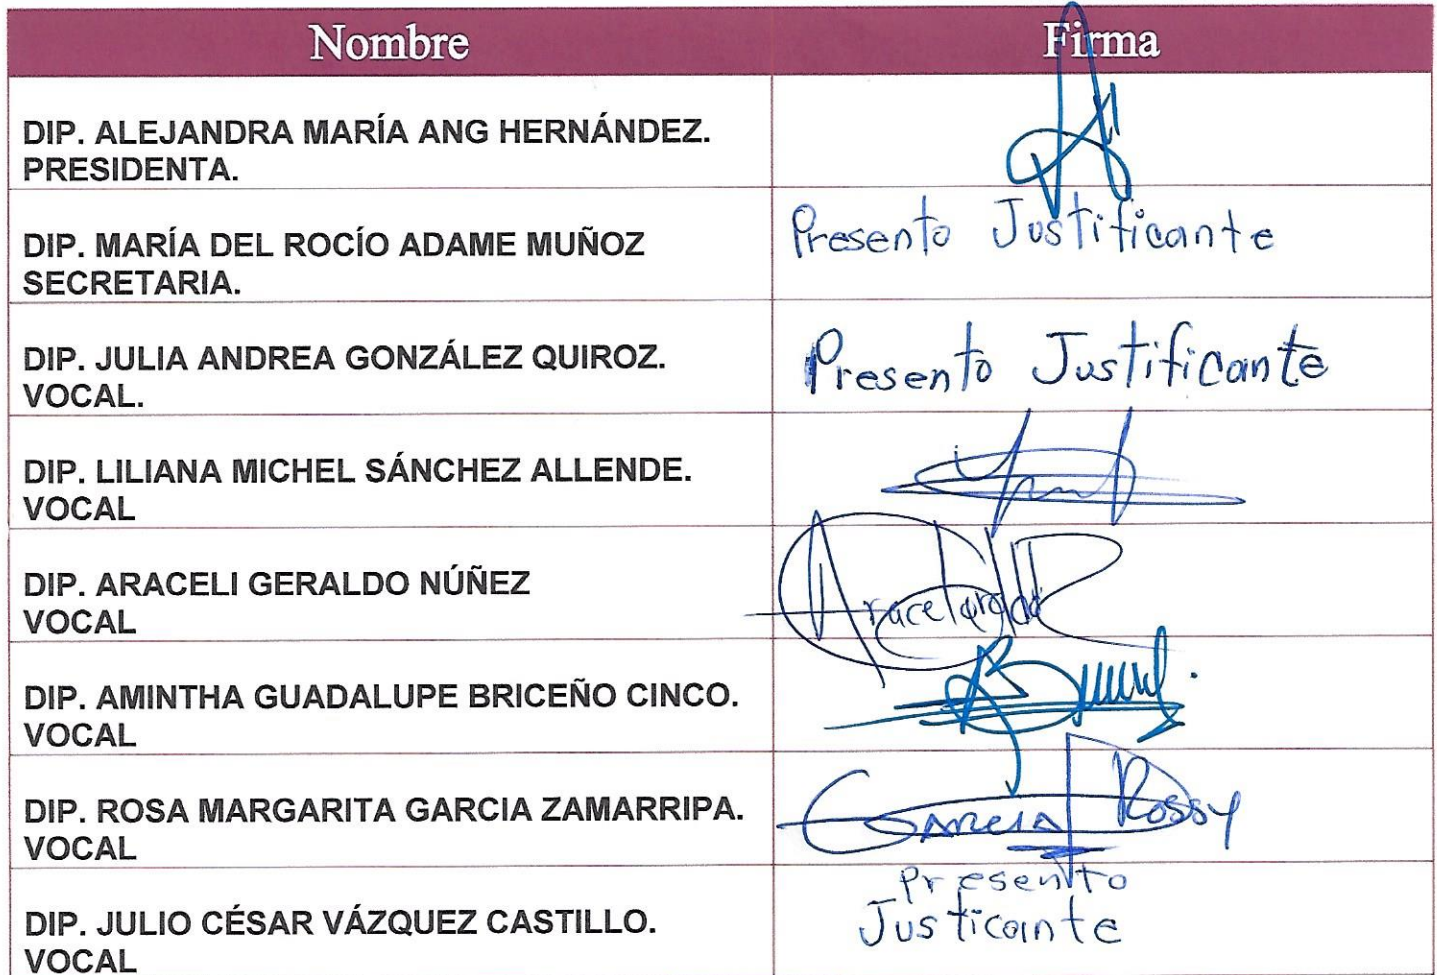 Nombre Firma
DIP. ALEJANDRA MARÍA ANG HERNÁNDEZ.
PRESIDENTA.
DIP. MARÍA DEL ROCÍO ADAME MUÑOZ
SECRETARIA.
Presento Justificante
DIP. JULIA ANDREA GONZÁLEZ QUIROZ.
VOCAL.
Presento Justificante
DIP. LILIANA MICHEL SÁNCHEZ ALLENDE.
VOCAL
DIP. ARACELI GERALDO NÚÑEZ
VOCAL
DIP. AMINTHA GUADALUPE BRICEÑO CINCO.
VOCAL
DIP. ROSA MARGARITA GARCIA ZAMARRIPA.
VOCAL
GARCIA Rossy
DIP. JULIO CÉSAR VÁZQUEZ CASTILLO.
VOCAL
Presento
Justicante